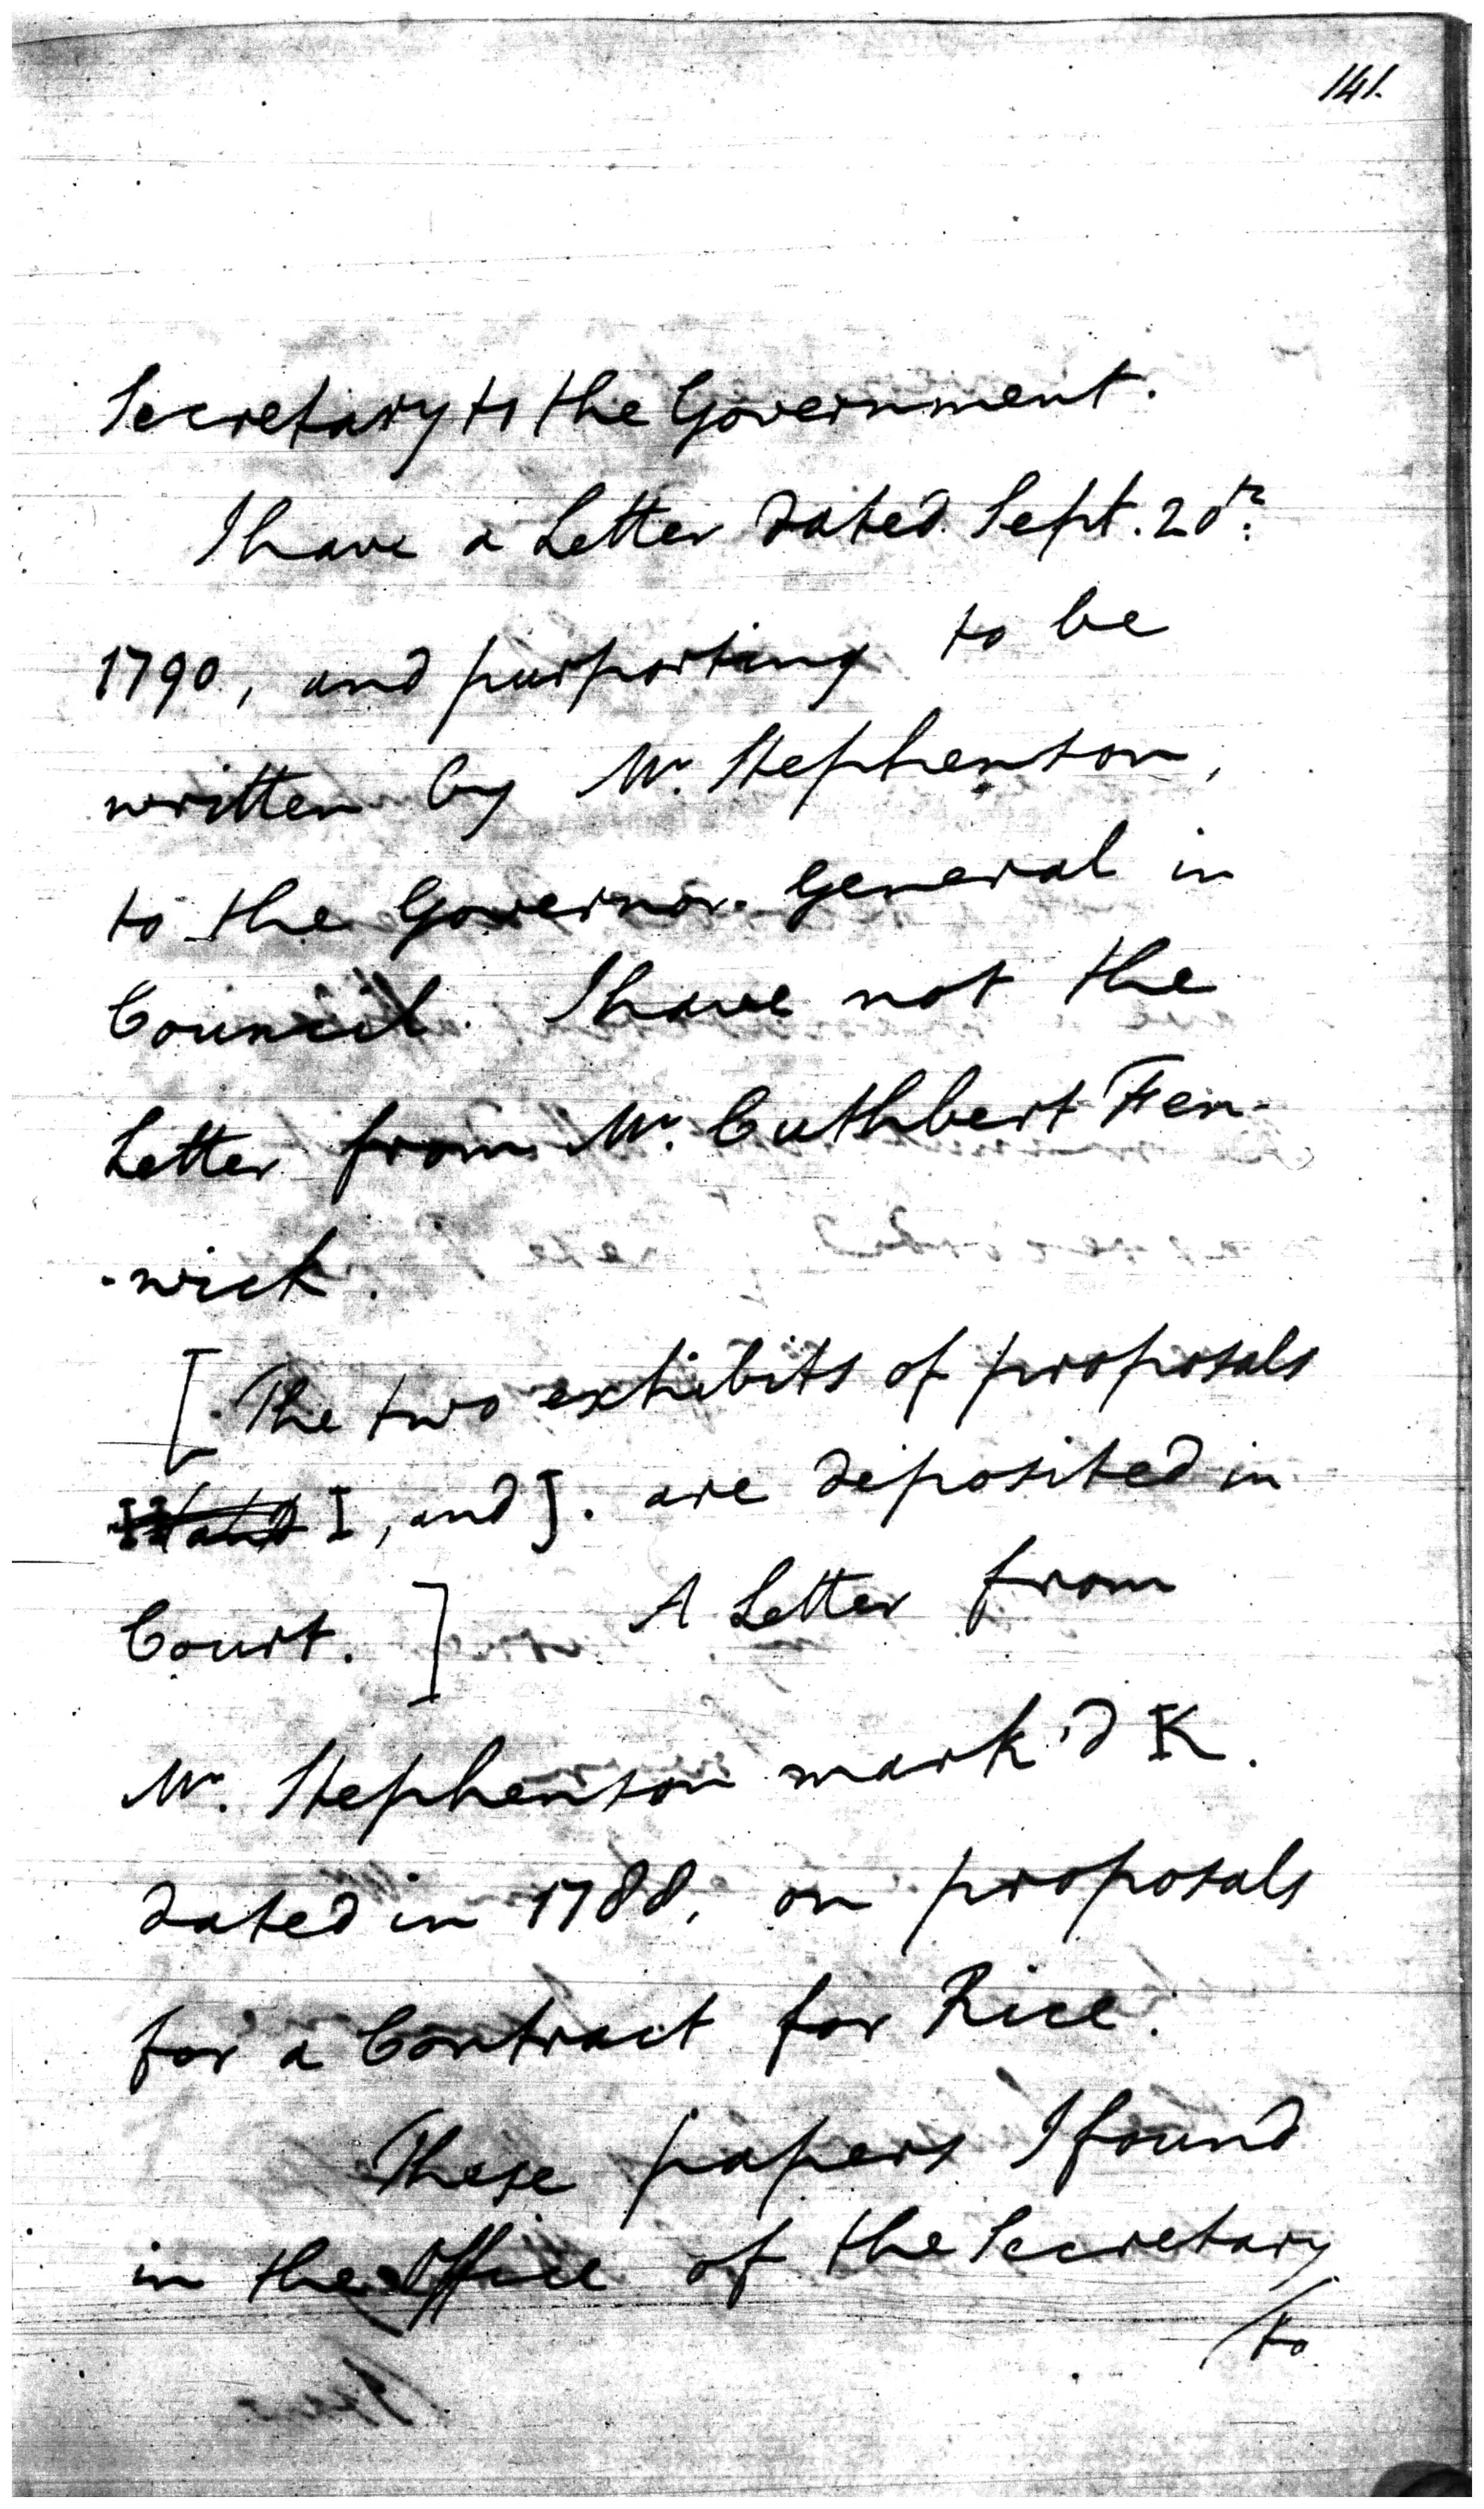 141.
Secretary to the Government.
I have a Letter dated Sept. 20th.
1790, and purporting to be
written by Mr. Stephenson,
to the Governor General in
Council. I have not the
Letter from Mr. Cuthbert Fen-
-wick.
[The two exhibits of proposals
I, and J. are deposited in
Court.] A Letter from
Mr. Stephenson mark'd K.
dated in 1788, on proposals
for a Contract for Rice.
These papers I found
in the Office of the Secretary
/to